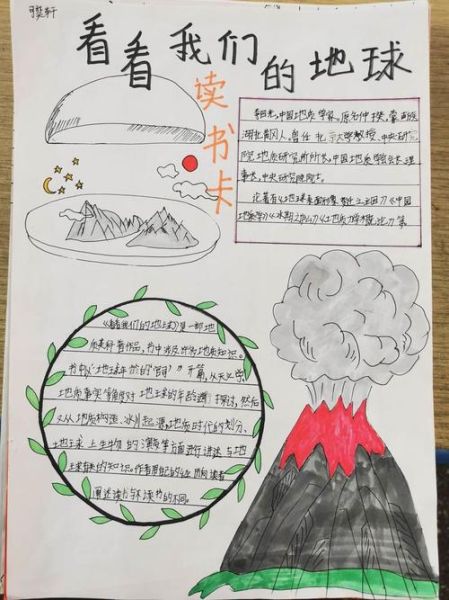 可樊轩
看看我们的地球
读书卡
李四光,中国地质学家,原名仲揆,蒙古族
湖北黄冈人。曾任北京大学教授、中央研究
院地质研究所所长、中国地质学会会长、理
事长、中央研究院院士。
论著有《地球表面形象变迁之主因》《中国
地质学》《冰期之庐山》《地质力学概论》等
《看看我们的地球》是一部地
质类科普作品,书中涉及许多地质知识。
书中以“地球年龄的‘官司’”开篇,从天文学,
地质事实等角度对地球的年龄进行探讨,然后
又从地质构造、冰川起源,地质时代的划分、
地球上生物的演变等方面进行讲述与地
球有关的知识。作者
阐述读书与不读书的不同。